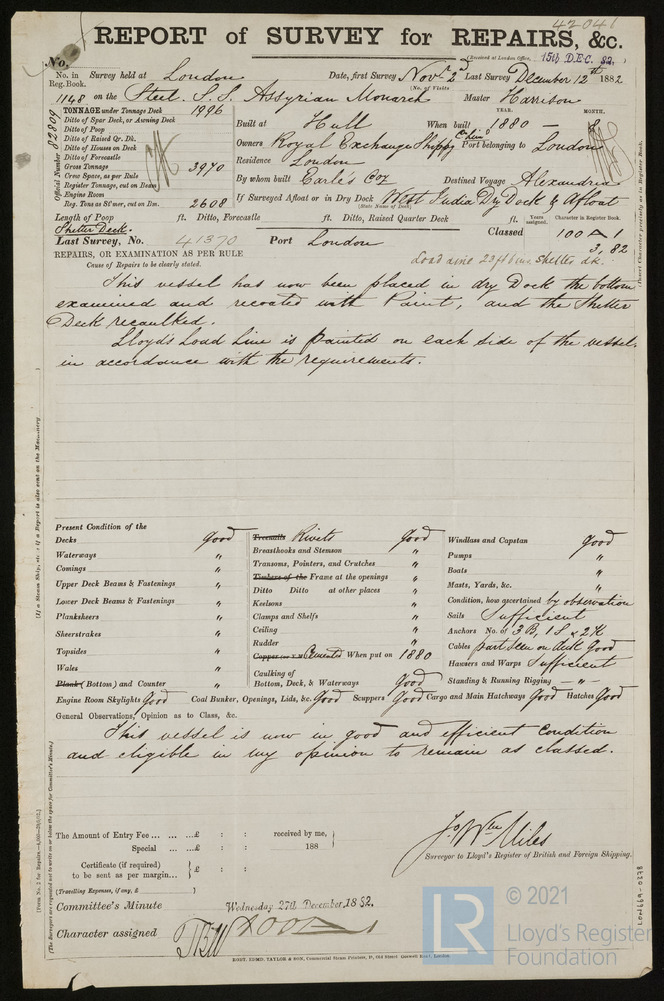 42041
REPORT of SURVEY for REPAIRS, &c.
(Received at London Office, 15th DEC. 82.
No.
No. in Reg. Book. Survey held at London Date, first Survey Nov. 2d Last Survey December 12th 1882
(No. of Visits
1148 on the Steel S.S. Assyrian Monarch Master Harrison
TONNAGE under Tonnage Deck 1996
Ditto of Spar Deck, or Awning Deck
Ditto of Poop
Ditto of Raised Qr. Dk.
Ditto of Houses on Deck
Ditto of Forecastle
Gross Tonnage 3970
Crew Space, as per Rule
Register Tonnage, cut on Beam
Engine Room
Reg. Tons as St'mer, cut on Bm. 2608
Official Number 82809
YEAR. MONTH.
Built at Hull When built 1880 - 8
Owners Royal Exchange Shippg Co Limd Port belonging to London
Residence London
By whom built Earle's Coy Destined Voyage Alexandria
If Surveyed Afloat or in Dry Dock West India Dry Dock & Afloat
(State Name of Dock)
Length of Poop ft. Ditto, Forecastle ft. Ditto, Raised Quarter Deck ft.
Shelter Deck.
Years assigned. Character in Register Book.
Last Survey, No. 41370 Port London Classed 100 A 1
3,82
Load line 23ft 6ins Shelter dk.
(Insert Character precisely as in Register Book.
REPAIRS, OR EXAMINATION AS PER RULE
Cause of Repairs to be clearly stated.
This vessel has now been placed in dry Dock the bottom
examined and recoated with Paint, and the Shelter
Deck recaulked.
Lloyd's Load Line is painted on each side of the vessel.
in accordance with the requirements.
Present Condition of the
Decks good
Waterways "
Comings "
Upper Deck Beams & Fastenings "
Lower Deck Beams & Fastenings "
Planksheers "
Sheerstrakes "
Topsides "
Wales "
Plank (Bottom) and Counter "
Treenails Rivets good
Breasthooks and Stemson "
Transoms, Pointers, and Crutches "
Timbers of the Frame at the openings "
Ditto Ditto at other places "
Keelsons "
Clamps and Shelfs "
Ceiling "
Rudder "
Copper (or Y.M.) Cemented When put on 1880
Caulking of Bottom, Deck, & Waterways Good
Windlass and Capstan good
Pumps "
Boats "
Masts, Yards, &c. "
Condition, how ascertained by observation
Sails Sufficient
Anchors No. of 3 B, 1 S & 2 K
Cables part seen on deck Good
Hawsers and Warps Sufficient
Standing & Running Rigging - " -
Engine Room Skylights Good Coal Bunker, Openings, Lids, &c. Good Scuppers Good Cargo and Main Hatchways Good Hatches Good
General Observations, Opinion as to Class, &c.
This vessel is now in good and efficient condition
and eligible in my opinion to remain as classed.
The Amount of Entry Fee ... ... ...£ : : received by me,
Special ... ...£ : : 188
Certificate (if required) to be sent as per margin... £ : :
(Travelling Expenses, if any, £ )
Jo Wm Miles
Surveyor to Lloyd's Register of British and Foreign Shipping.
Committee's Minute Wednesday 27th December, 1882.
Character assigned 100 A 1
ROBT. EDMD. TAYLOR & SON, Commercial Steam Printers, 19, Old Street Goswell Road, London
LON669-0278
© 2021
LR
Lloyd's Register
Foundation